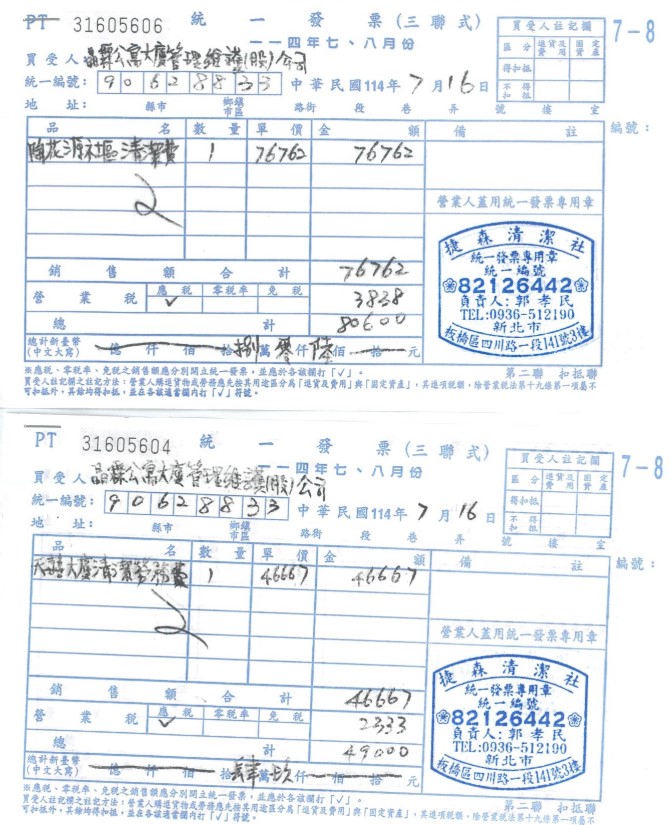 PT 31605606 統一發票(三聯式)
一一四年七、八月份
7-8
買受人註記欄
區分 進貨及費用 固定資產
得扣抵
不得扣抵
買受人 晶霖公寓大廈管理維護(股)公司
統一編號: 90628833 中華民國114年7月16日
地址: 縣市 鄉鎮市區 路街 段 巷 弄 號 樓 室
品名 數量 單價 金額 備註 編號:
桃花源社區清潔費 1 76762 76762
營業人蓋用統一發票專用章
捷森清潔社
統一發票專用章
統一編號
82126442
負責人:郭孝民
TEL:0936-512190
新北市
板橋區四川路一段141號3樓
銷售額合計 76762
營業稅 應稅 ✓ 零稅率 免稅 3838
總計 80600
總計新臺幣(中文大寫) 億 仟 佰 拾 捌萬 零仟 陸佰 拾 元
※應稅、零稅率、免稅之銷售額應分別開立統一發票,並應於各該欄打「✓」。
買受人註記欄之註記方法:營業人購進貨物或勞務應先按其用途區分為「進貨及費用」與「固定資產」,其進項稅額,除營業稅法第十九條第一項屬不可扣抵外,其餘均得扣抵,並在各該適當欄內打「✓」符號。
第二聯 扣抵聯
PT 31605604 統一發票(三聯式)
一一四年七、八月份
7-8
買受人註記欄
區分 進貨及費用 固定資產
得扣抵
不得扣抵
買受人 晶霖公寓大廈管理維護(股)公司
統一編號: 90628833 中華民國114年7月16日
地址: 縣市 鄉鎮市區 路街 段 巷 弄 號 樓 室
品名 數量 單價 金額 備註 編號:
大廈清潔勞務費 1 46667 46667
營業人蓋用統一發票專用章
捷森清潔社
統一發票專用章
統一編號
82126442
負責人:郭孝民
TEL:0936-512190
新北市
板橋區四川路一段141號3樓
銷售額合計 46667
營業稅 應稅 ✓ 零稅率 免稅 2333
總計 49000
總計新臺幣(中文大寫) 億 仟 佰 拾 肆萬 玖仟 佰 拾 元
※應稅、零稅率、免稅之銷售額應分別開立統一發票,並應於各該欄打「✓」。
買受人註記欄之註記方法:營業人購進貨物或勞務應先按其用途區分為「進貨及費用」與「固定資產」,其進項稅額,除營業稅法第十九條第一項屬不可扣抵外,其餘均得扣抵,並在各該適當欄內打「✓」符號。
第二聯 扣抵聯